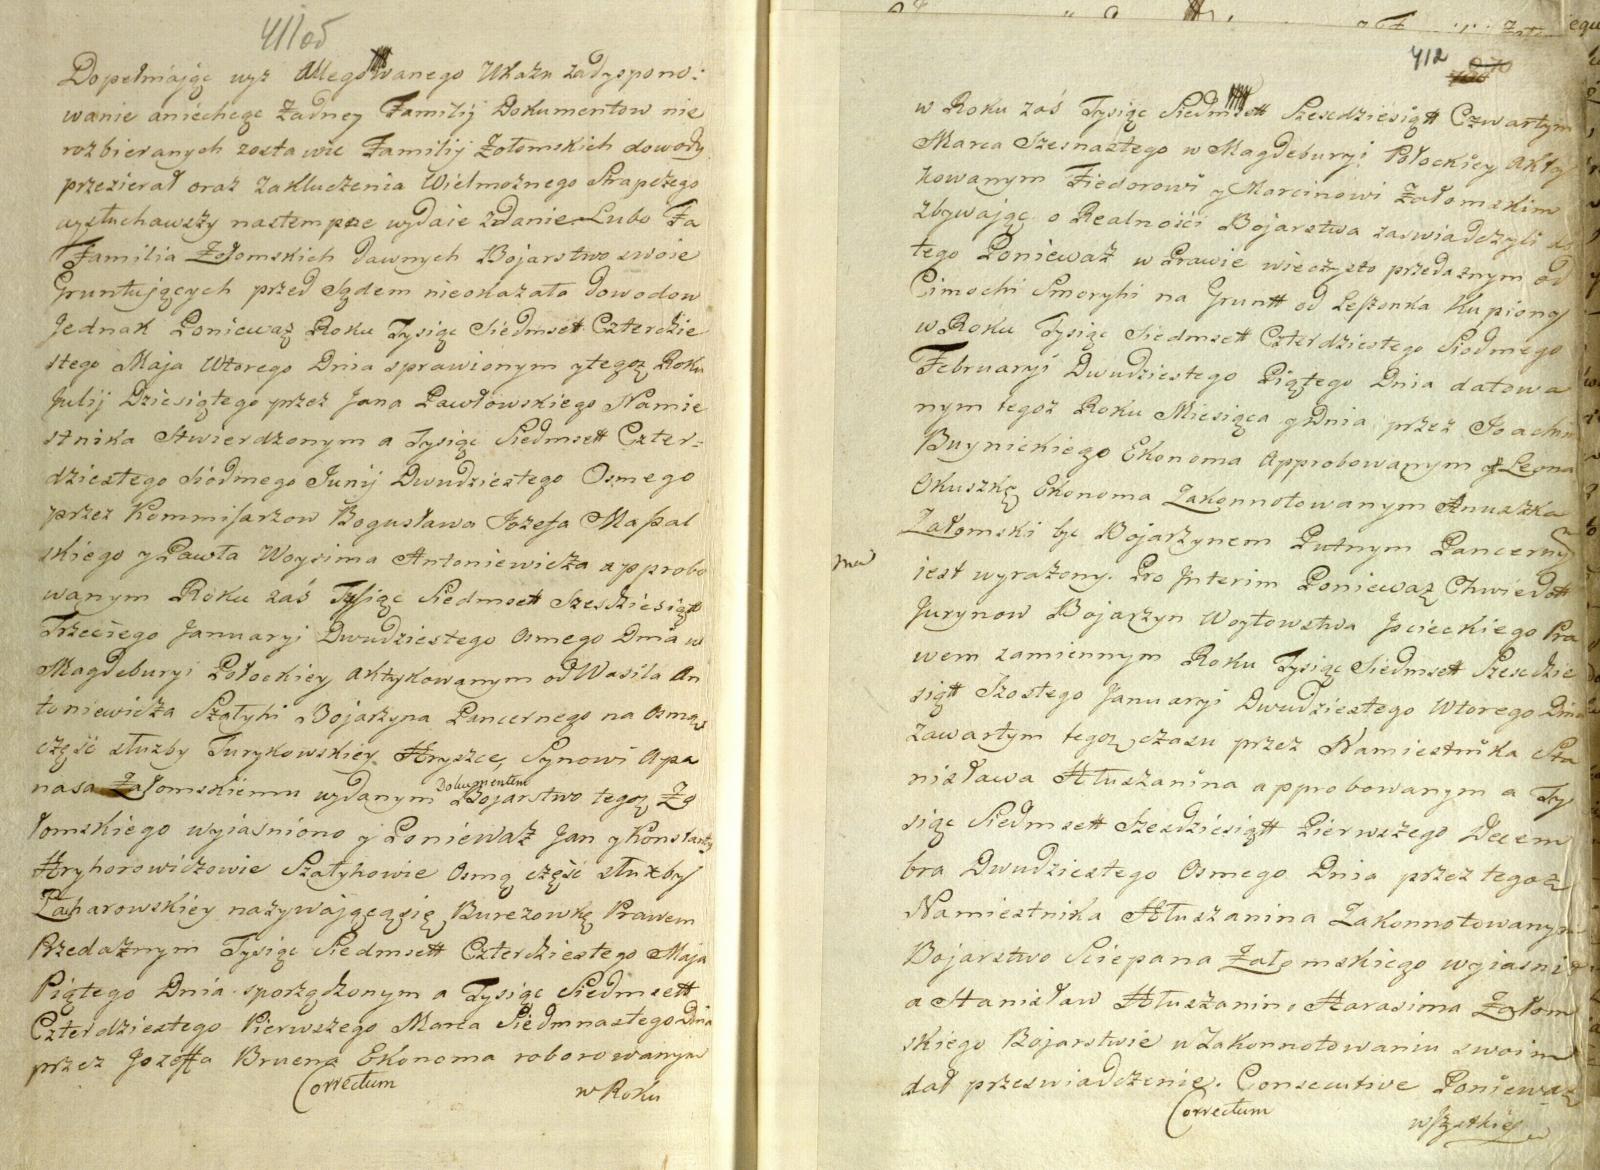 411 об
Dopełniaiąc wyz Allegowanego Ukazu zadyspono:
wanie aniechcąc Zadney Familij Dokumentow nie
rozbieranych zostawic Familij Załomskich dowody
przezierał oraz Zakluczenia Wielmożnego Strapczego
wysłuchawszy nastempne wydaie zdanie Lubo Ta
Familia Załomskich dawnych Bojarstwo swoie
Gruntuiących przed Sądem nieokazała dowodow
Jednak Poniewaz Roku Tysiąc Siedmset Czterdzie
stego Maja Wtorego Dnia sprawionym y tegoz Roku
Julij Dziesiątego przez Jana Pawłowskiego Namie
stnika Stwierdzonym a Tysiąc Siedmset Czter=
dziestego Siódmego Junij Dwudziestego Osmego
przez Kommisarzow Bogusława Jozefa
skiego y Pawła Woysima Antoniewicza approbo
wanym Roku zaś Tysiąc Siedmset Szesdziesiąt
Trzeciego Januaryi Dwudziestego Osmego Dnia w
Magdeburyi Połockiey Aktykowanym od Wasila An
toniewicza Szałyhi Bojarzyna Pancernego na Osmą
część służby Turykowskiey Hryszce, Synowi Apa
nasa Załomskiemu wydanym Dokumentem Bojarstwo tegoz Za
łomskiego wyiaśniono y Poniewaz Jan y Konstanty
Hryhorowiczowie Szałyhowie Osmą część służby
Zacharowskiey nazywaiącąsię Burezowkę Prawem
Przedaznym Tysiąc Siedmset Czterdziestego Maja
Piątego Dnia sporządzonym a Tysiąc Siedmset
Czterdziestego Pierwszego Marca Siedmnastego Dnia
przez Jozeffa Bruena Ekonoma roborowanym
Correctum
w Roku
412
w Roku zaś Tysiąc Siedmset Szescdziesiąt Czwartym
Marca Szesnastego w Magdeburyi Połockiey Akty
kowanym Fiedorowi y Marcinowi Załomskim
zbywaiąc o Realności Bojarstwa zaswiadczyli do
tego Poniewaz w Prawie wieczysto przedaznym od
Cimochi Smoryhi na Grunt od Leszonka Kupiony
w Roku Tysiąc Siedmset Czterdziestego Siodmego
Februaryi Dwudziestego Piątego Dnia datowa
nym tegoz Roku Miesiąca y Dnia przez Joachi
Buynickiego Ekonoma Approbowanym y Leona
Okuszkę Ekonoma Zakonnotowanym Anuszka
Załomski byc Bojarzynem Putnym Pancerny
iest wyrażony. Pro Interim Poniewaz Chwiedor
Jurynow Bojarzyn Woytowstwa Pra
wem zamiennym Roku Tysiąc Siedmset Szescdzie
siąt Szostego Januaryi Dwudziestego Wtorego Dnia
Zawartym tegoz czasu przez Namiestnika Sta
nisława Hłuszanina approbowanym a Ty
siąc Siedmset Szesdziesiąt Pierwszego Decem
bra Dwudziestego Osmego Dnia przez tegoz
Namiestnika Hłuszanina Zakonnotowanym
Bojarstwo Sciepana Załomskiego wyiasnił
a Stanisław Hłuszanin o Harasima Załom
skiego Bojarstwie w Zakonnotowaniu swoim
dał przeswiadczenie. Consecutive Poniewaz
Correctum
wszystkie